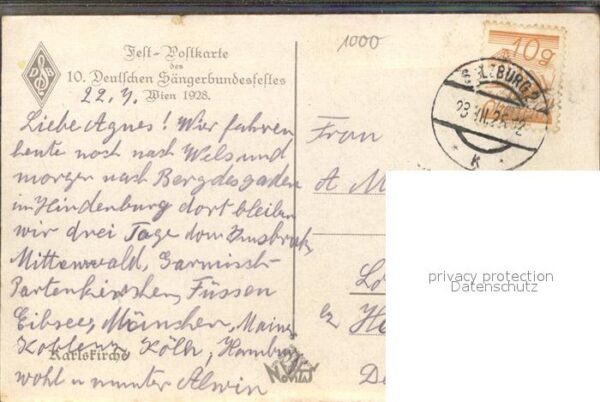 Fest-Postkarte
des
10. Deutschen Sängerbundesfestes
Wien 1928.
D S B
22.7.
Liebe Agnes! Wir fahren
heute noch nach Wels und
morgen nach Bergdesgaden
im Hindenburg dort bleiben
wir drei Tage dom Innsbruck
Mittenwald, Garmisch-
Partenkirchen, Füssen
Eibsee, München, Mainz
Koblenz Köln, Hamburg
Karlskirche
wohl u munter Alwin
1000
10g
SALZBURG 2
23.VII.28
K
Frau
A M
privacy protection
Datenschutz